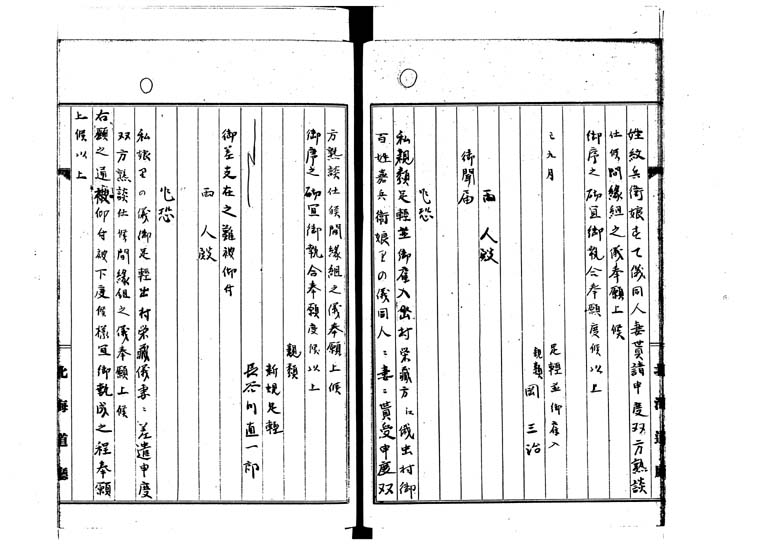 姓紋兵衛娘もて儀同人妻貰請申度双方熟談
仕候間縁組之儀奉願上候
御序之砌宜御執合奉願度候以上
足軽並御雇入
親類 岡三治
九月
両人殿
御聞届
乍恐
私親類足軽並御雇入出村栄蔵方江儀出村御
百姓嘉兵衛娘里の儀同人ニ妻ニ貰受申度双
方熟談仕候間縁組之儀奉願上候
御序之砌宜御執合奉願度候以上
親類
新規足軽
長谷川直一郎
両人殿
御差支在之難被仰付
乍恐
私娘里の儀御足軽出村栄蔵儀妻ニ差遣申度
双方熟談仕候間縁組之儀奉願上候
右願之通被仰付被下度候様宜御執成之程奉願
上候以上
北海道庁